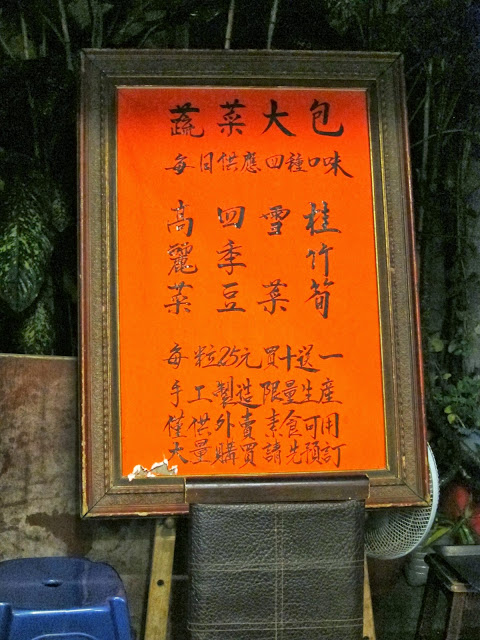 蔬菜大包
每日供應四種口味
高麗菜
四季豆
雪菜
桂竹筍
每粒25元買十送一
手工製造限量生產
僅供外賣素食可用
大量購買請先預訂